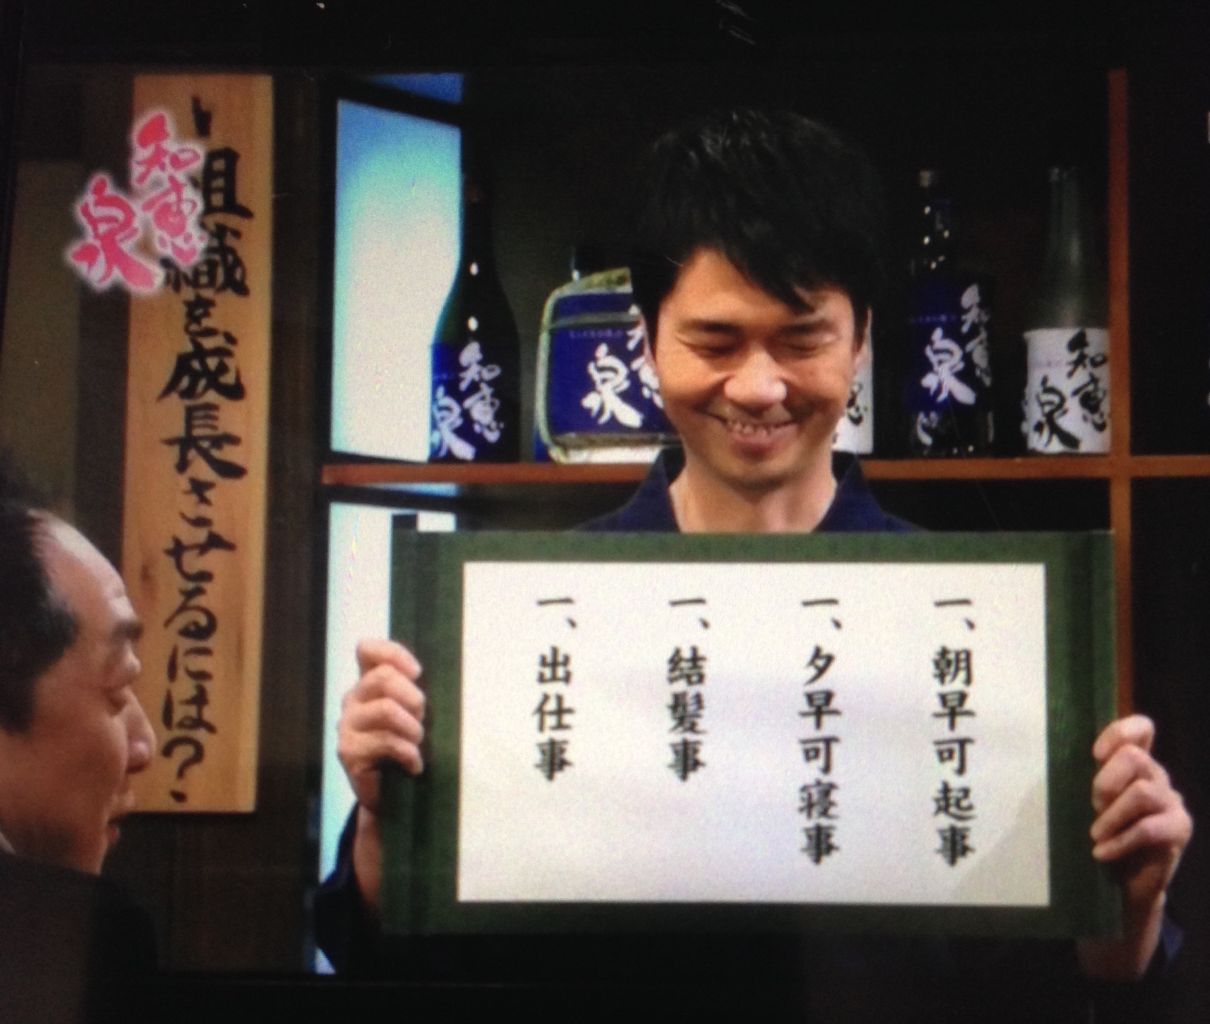 知恵泉
組織を成長させるには?
知恵泉
知恵泉
知恵泉
知恵泉
一、朝早可起事
一、夕早可寝事
一、結髪事
一、出仕事